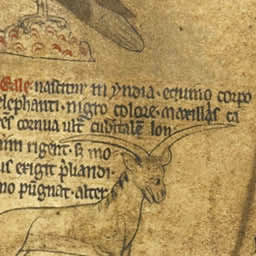 Eale nascitur in yndia · equino corpo
elephanti · nigro colore · maxillas ca
cornua ult cubitalē lon
rigent · s; mo
us exigit pliandi
no pugnat · alter